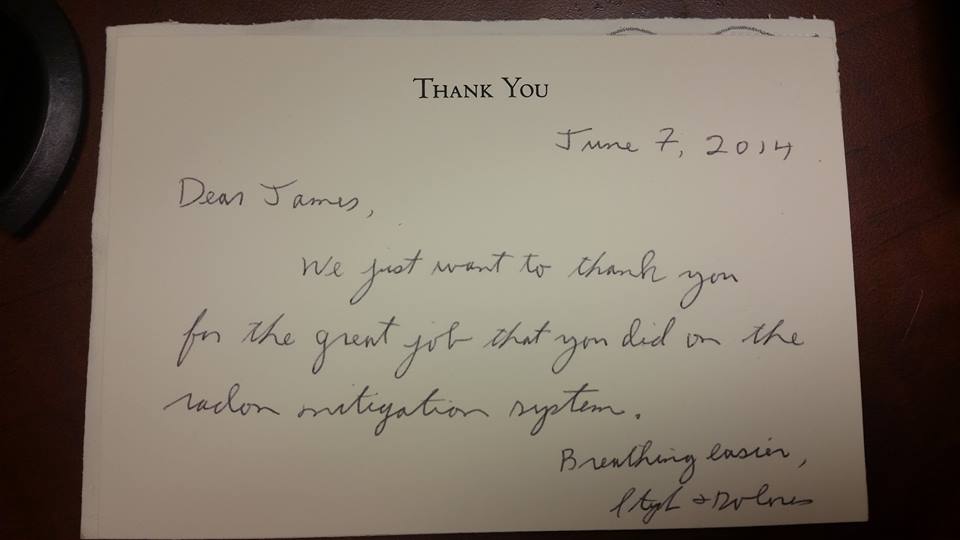 THANK YOU
June 7, 2014
Dear James,
We just want to thank you
for the great job that you did on the
radon mitigation system.
Breathing easier,
& Dolores